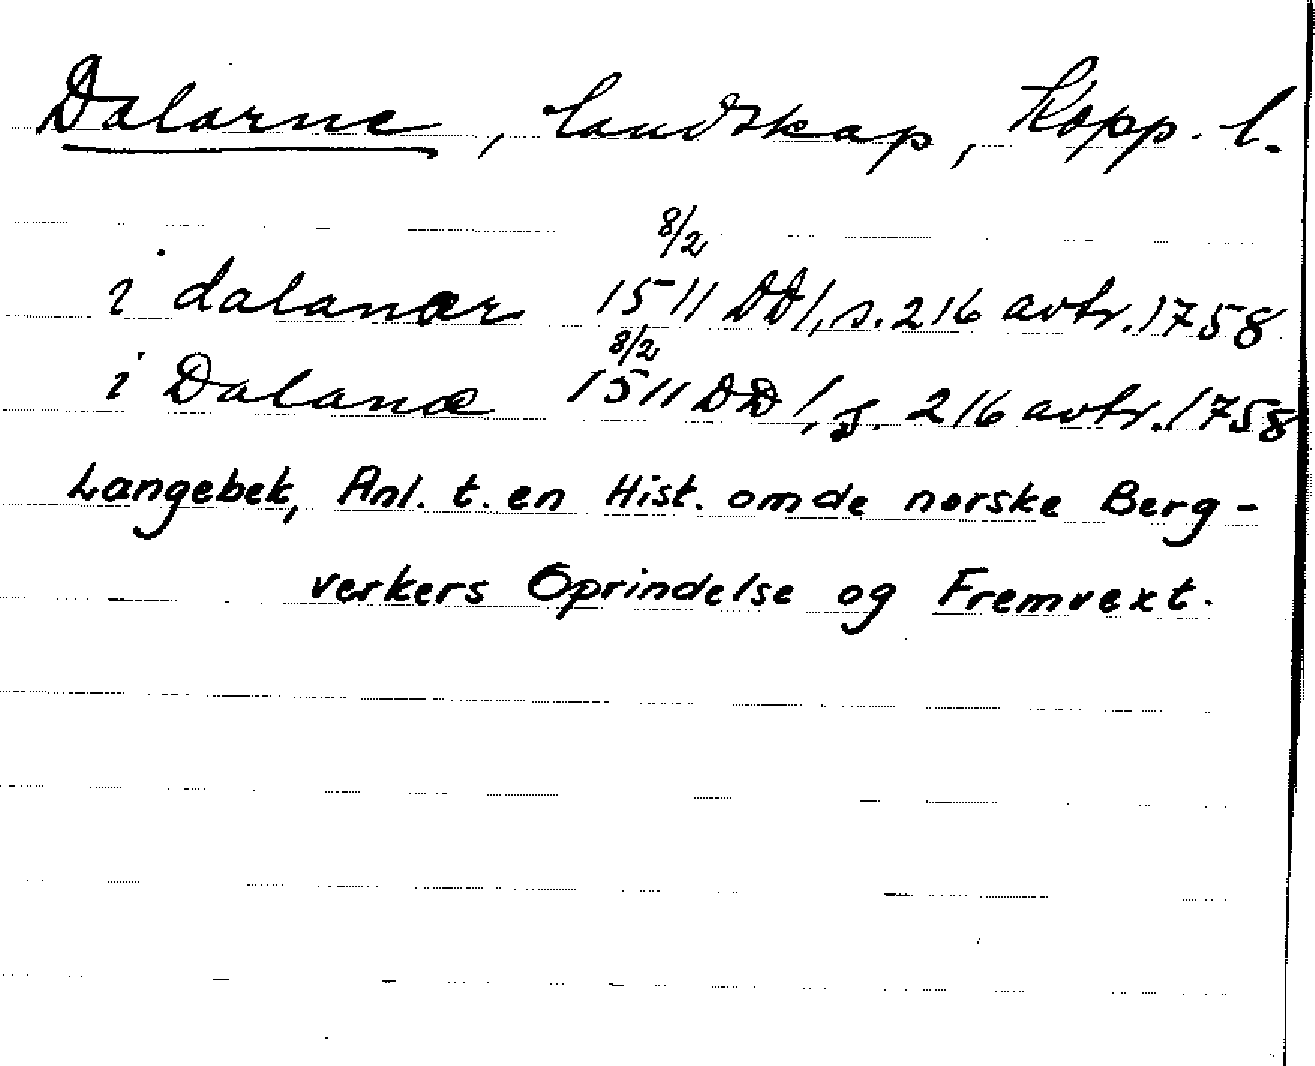 Dalarne, landskap, Kopp. l.
i dalanær 8/2 1511 DD 1, s. 216 avtr. 1758
i Dalanæ 8/2 1511 DD 1, s. 216 avtr. 1758
Langebek, Anl. t. en Hist. om de norske Berg-
verkers Oprindelse og Fremvext.